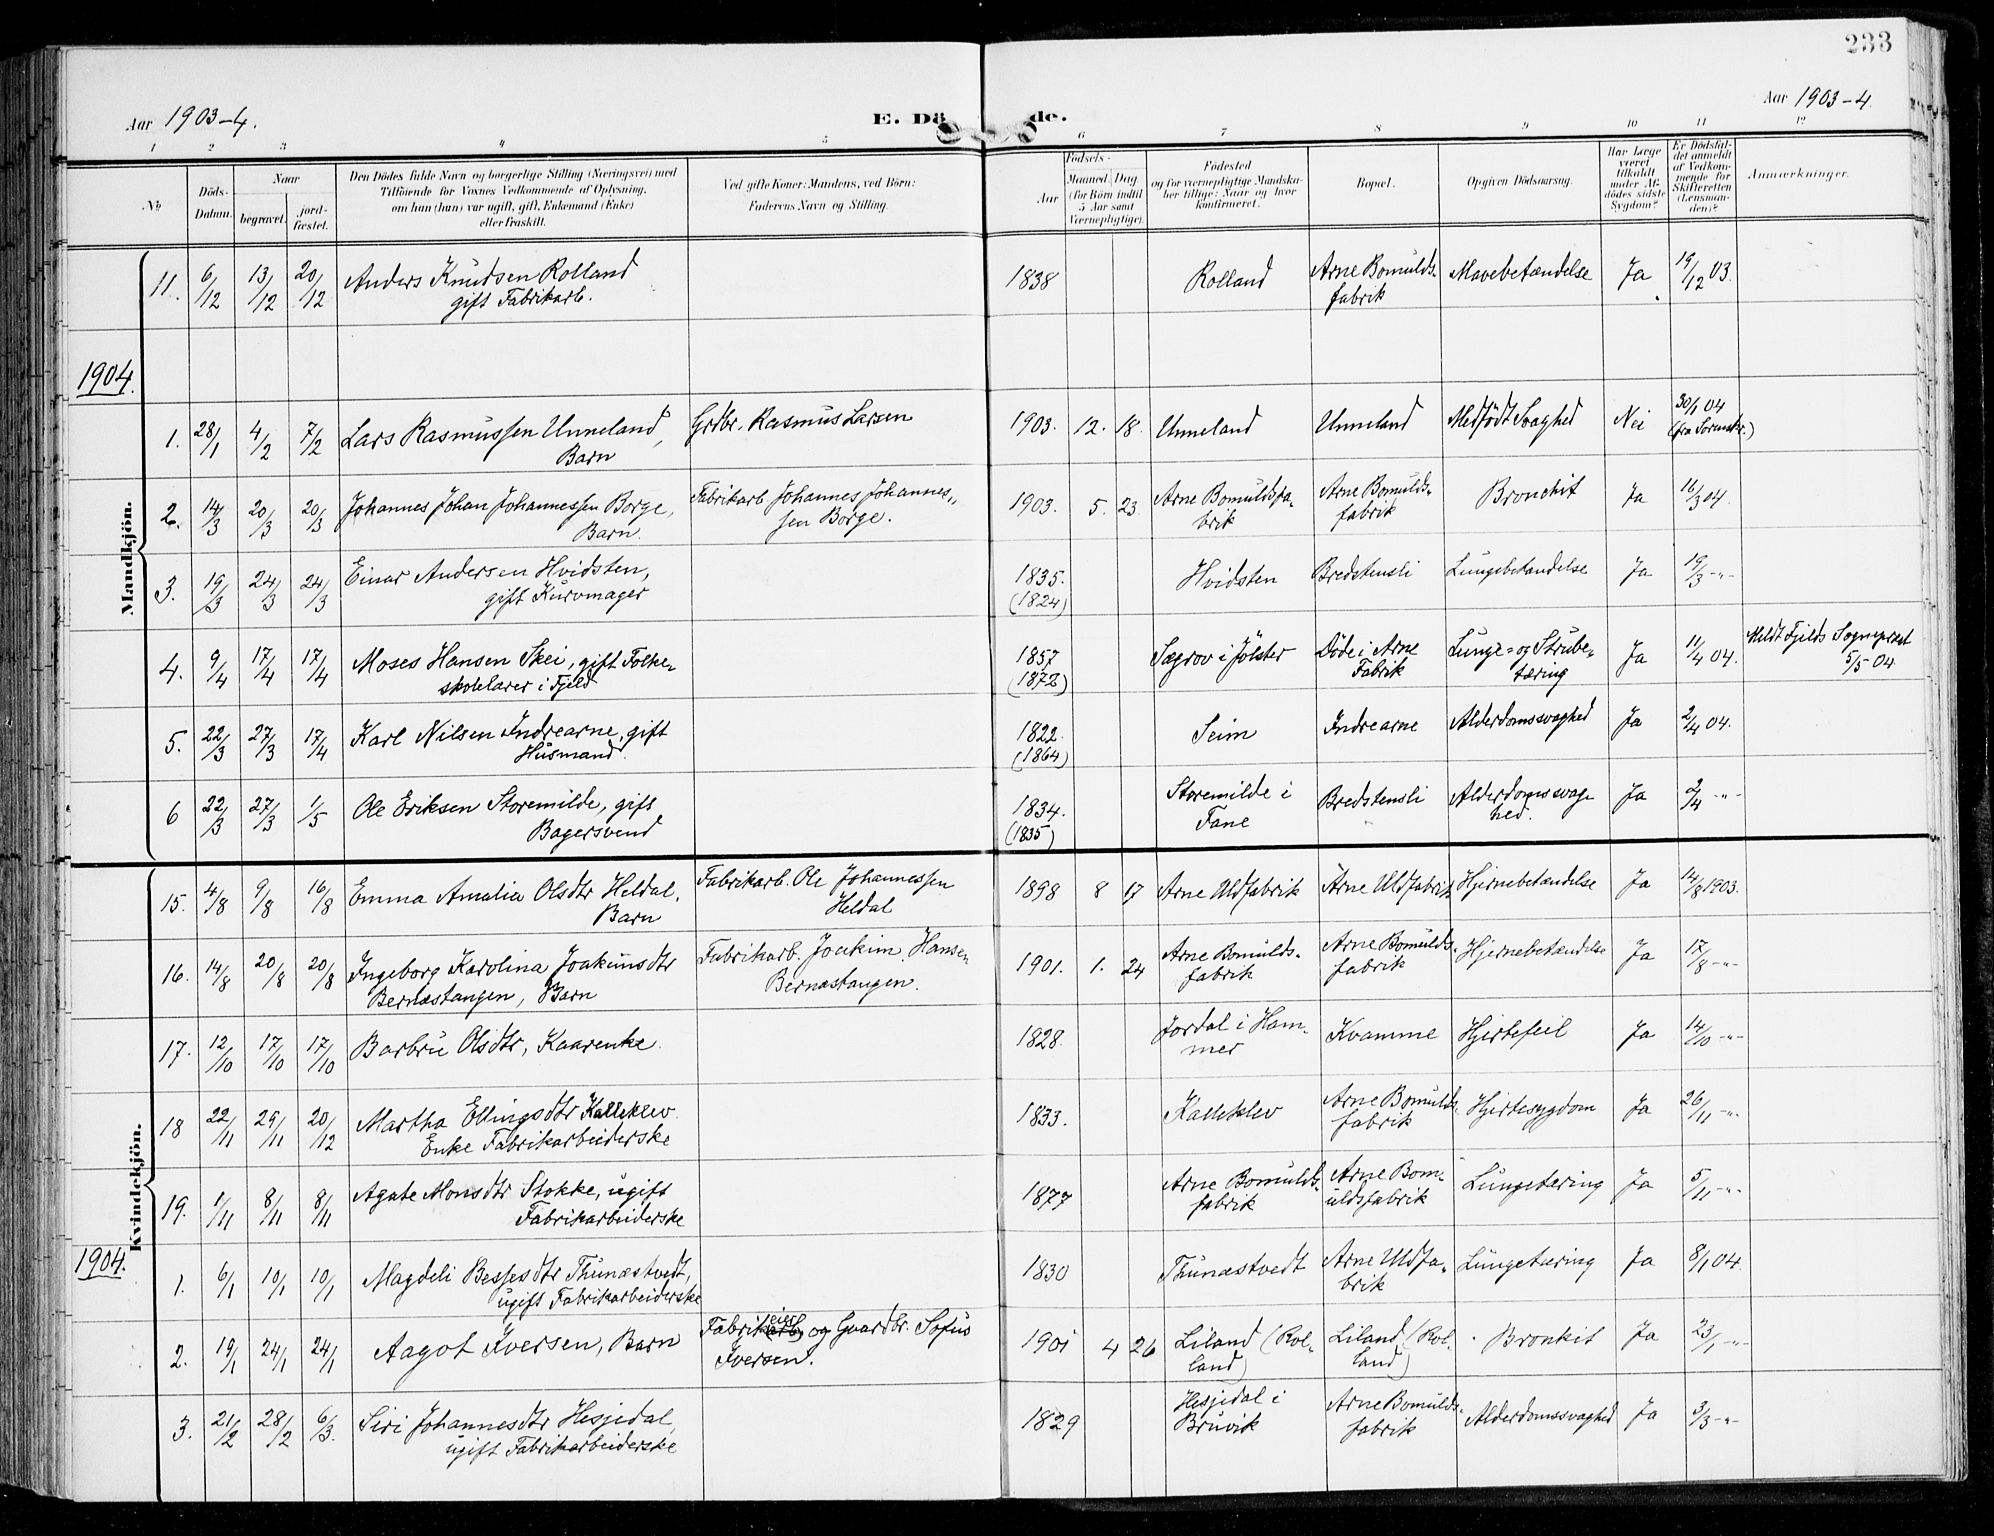 233
Aar 1903-4.
E. Dö
de.
Aar 1903-4
1 2 3 4 5 6 7 8 9 10 11 12
No
Döds-
Datum.
Naar
begravet.
jord-
fæstet.
Den Dödes fulde Navn og borgerlige Stilling (Næringsvei) med
Tilföiende for Voxnes Vedkommende af Oplysning,
om han (hun) var ugift, gift, Enkemand (Enke)
eller fraskilt.
Ved gifte Koner: Mandens, ved Börn:
Faderens Navn og Stilling.
Födsels-
Aar
Maaned. Dag
(for Börn indtil
5 Aar samt
Værnepligtige).
Födested
og for værnepligtige Mandska-
ber tillige: Naar og hvor
konfirmeret.
Bopæl.
Opgiven Dödsaarsag.
Har Læge
været
tilkaldt
under Af-
dödes sidste
Sygdom?
Er Dödsfal-
det anmeldt
af Vedkom-
mende for
Skifteretten
(Lensman-
den)?
Anmærkninger.
Mandkjön.
11. 6/12 13/12 20/12 Anders Knudsen Rolland
gift Fabrikarb.
1838 Rolland Arne Bomulds-
fabrik
Mavebetændelse Ja 19/12 03.
1904.
1. 28/1 4/2 7/2 Lars Rasmussen Unneland,
Barn
Grdbr. Rasmus Larsen
1903. 12. 18. Unneland Unneland Medfödt Svaghed Nei 30/1 04
(fra Sorenskr.)
2. 14/3 20/3 20/3 Johannes Johan Johannessen Borge,
Barn.
Fabrikarb Johannes Johannes-
sen Borge.
1903. 5. 23. Arne Bomuldsfa-
brik
Arne Bomulds-
fabrik
Bronchit Ja 16/3 04.
3. 19/3 24/3 24/3 Einar Andersen Hvidsten,
gift Kurvmager
1835.
(1824)
Hvidsten Bredstensli Lungebetændelse Ja 19/3 -"-
4. 9/4 17/4 17/4 Moses Hansen Skei, gift Folke-
skolelærer i Fjeld
1857
(1872)
Sægrov i Jölster Döde i Arne
Fabrik
Lunge- og Strube-
tæring
Ja 11/4 04. Meldt Fjelds Sognepræst
5/5 04.
5. 22/3 27/3 17/4 Karl Nilsen Indrearne, gift
Husmand.
1822.
(1864)
Seim Indrearne Alderdomssvaghed Ja 2/4 04.
6 22/3 27/3 1/5 Ole Eriksen Storemilde, gift
Bagersvend
1834.
(1835)
Storemilde i
Fane
Bredstensli Alderdomssvag-
hed.
Ja 2/4 -"-
Kvindekjön.
15. 4/8 9/8 16/8 Emma Amalia Olsdtr Heldal,
Barn
Fabrikarb. Ole Johannessen
Heldal
1898 8 17 Arne Uldfabrik Arne Uldfabrik Hjernebetændelse Ja 14/8 1903.
16. 14/8 20/8 20/8 Ingeborg Karolina Joakimsdtr
Bernæstangen, Barn
Fabrikarb. Joakim Hansen
Bernæstangen.
1901. 1. 24 Arne Bomulds-
fabrik
Arne Bomulds-
fabrik
Hjernebetændelse Ja 17/8 -"-
17. 12/10 17/10 17/10 Barbru Olsdtr, Kaarenke.
1828. Jordal i Ham-
mer
Kvamme Hjertefeil Ja 14/10 -"-
18 22/11 29/11 20/12 Martha Ellingsdtr Kalleklev
Enke Fabrikarbeiderske
1833. Kalleklev Arne Bomulds-
fabrik
Hjertesygdom Ja 26/11 -"-
19. 1/11 8/11 8/11 Agate Monsdtr Stokke, ugift
Fabrikarbeiderske
1877 Arne Bomulds-
fabrik
Arne Bom-
uldsfabrik
Lungetæring Ja 5/11 -"-
1904.
1. 6/1 10/1 10/1 Magdeli Bessesdtr Thunæstvedt,
ugift Fabrikarbeiderske
1830 Thunæstvedt Arne Uldfa-
brik
Lungetæring Ja 8/1 04.
2. 19/1 24/1 24/1 Aagot Iversen, Barn
Fabrikeier og Gaardbr. Sofus
Iversen.
1901 4 26 Liland (Rol-
land)
Liland (Rol-
land)
Bronkit Ja 23/1 -"-
3. 21/2 28/2 6/3. Siri Johannesdtr Hesjedal,
ugift Fabrikarbeiderske
1829 Hesjedal i
Bruvik
Arne Bomulds-
fabrik
Alderdomssvaghed Ja 3/3 -"-